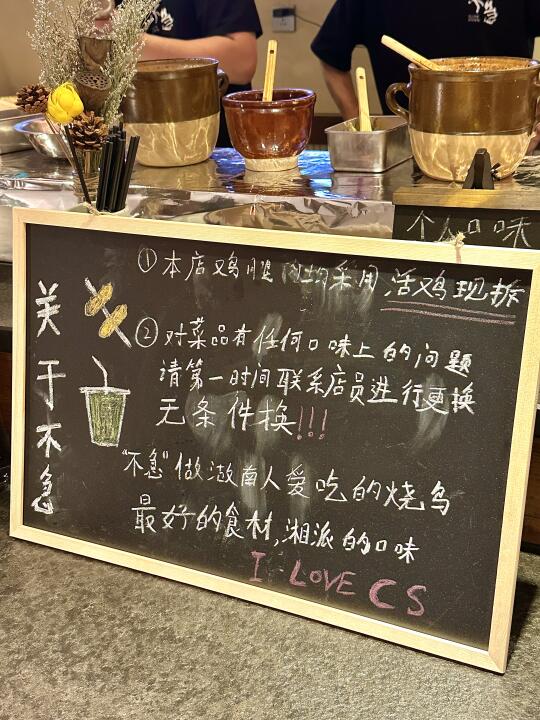 关于不急
①本店鸡腿肉均采用活鸡现拆
②对菜品有任何口味上的问题
请第一时间联系店员进行更换
无条件换!!!
"不急"做湖南人爱吃的烧鸟
最好的食材,湘派的口味
I LOVE CS
个人口味